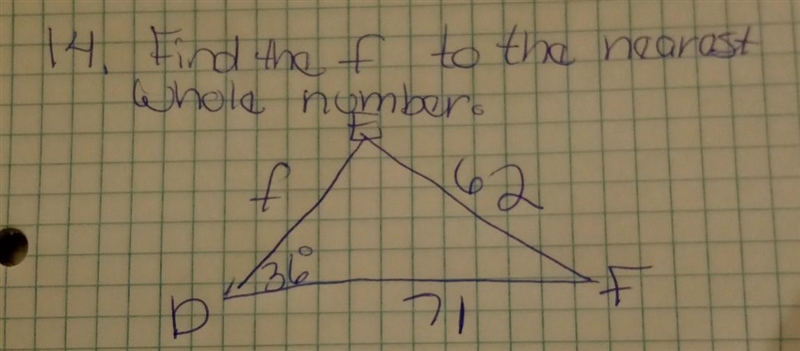 14. Find the f to the nearest
whole number.
E
f
62
36°
D
71
F